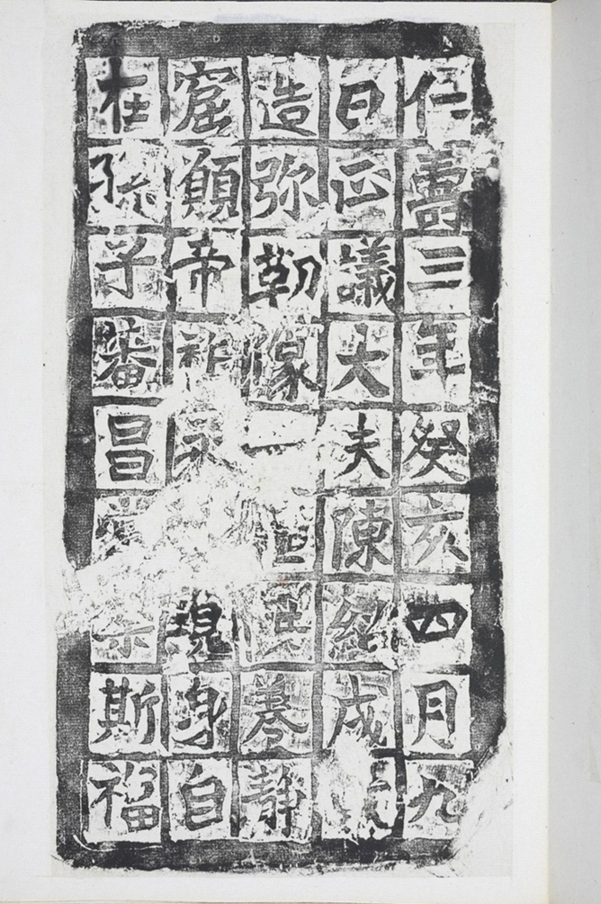 仁壽三年癸亥四月九
日正議大夫陳紹成
造弥勒像一養靜
窟願帝祚現身自
在孫子蕃昌斯福